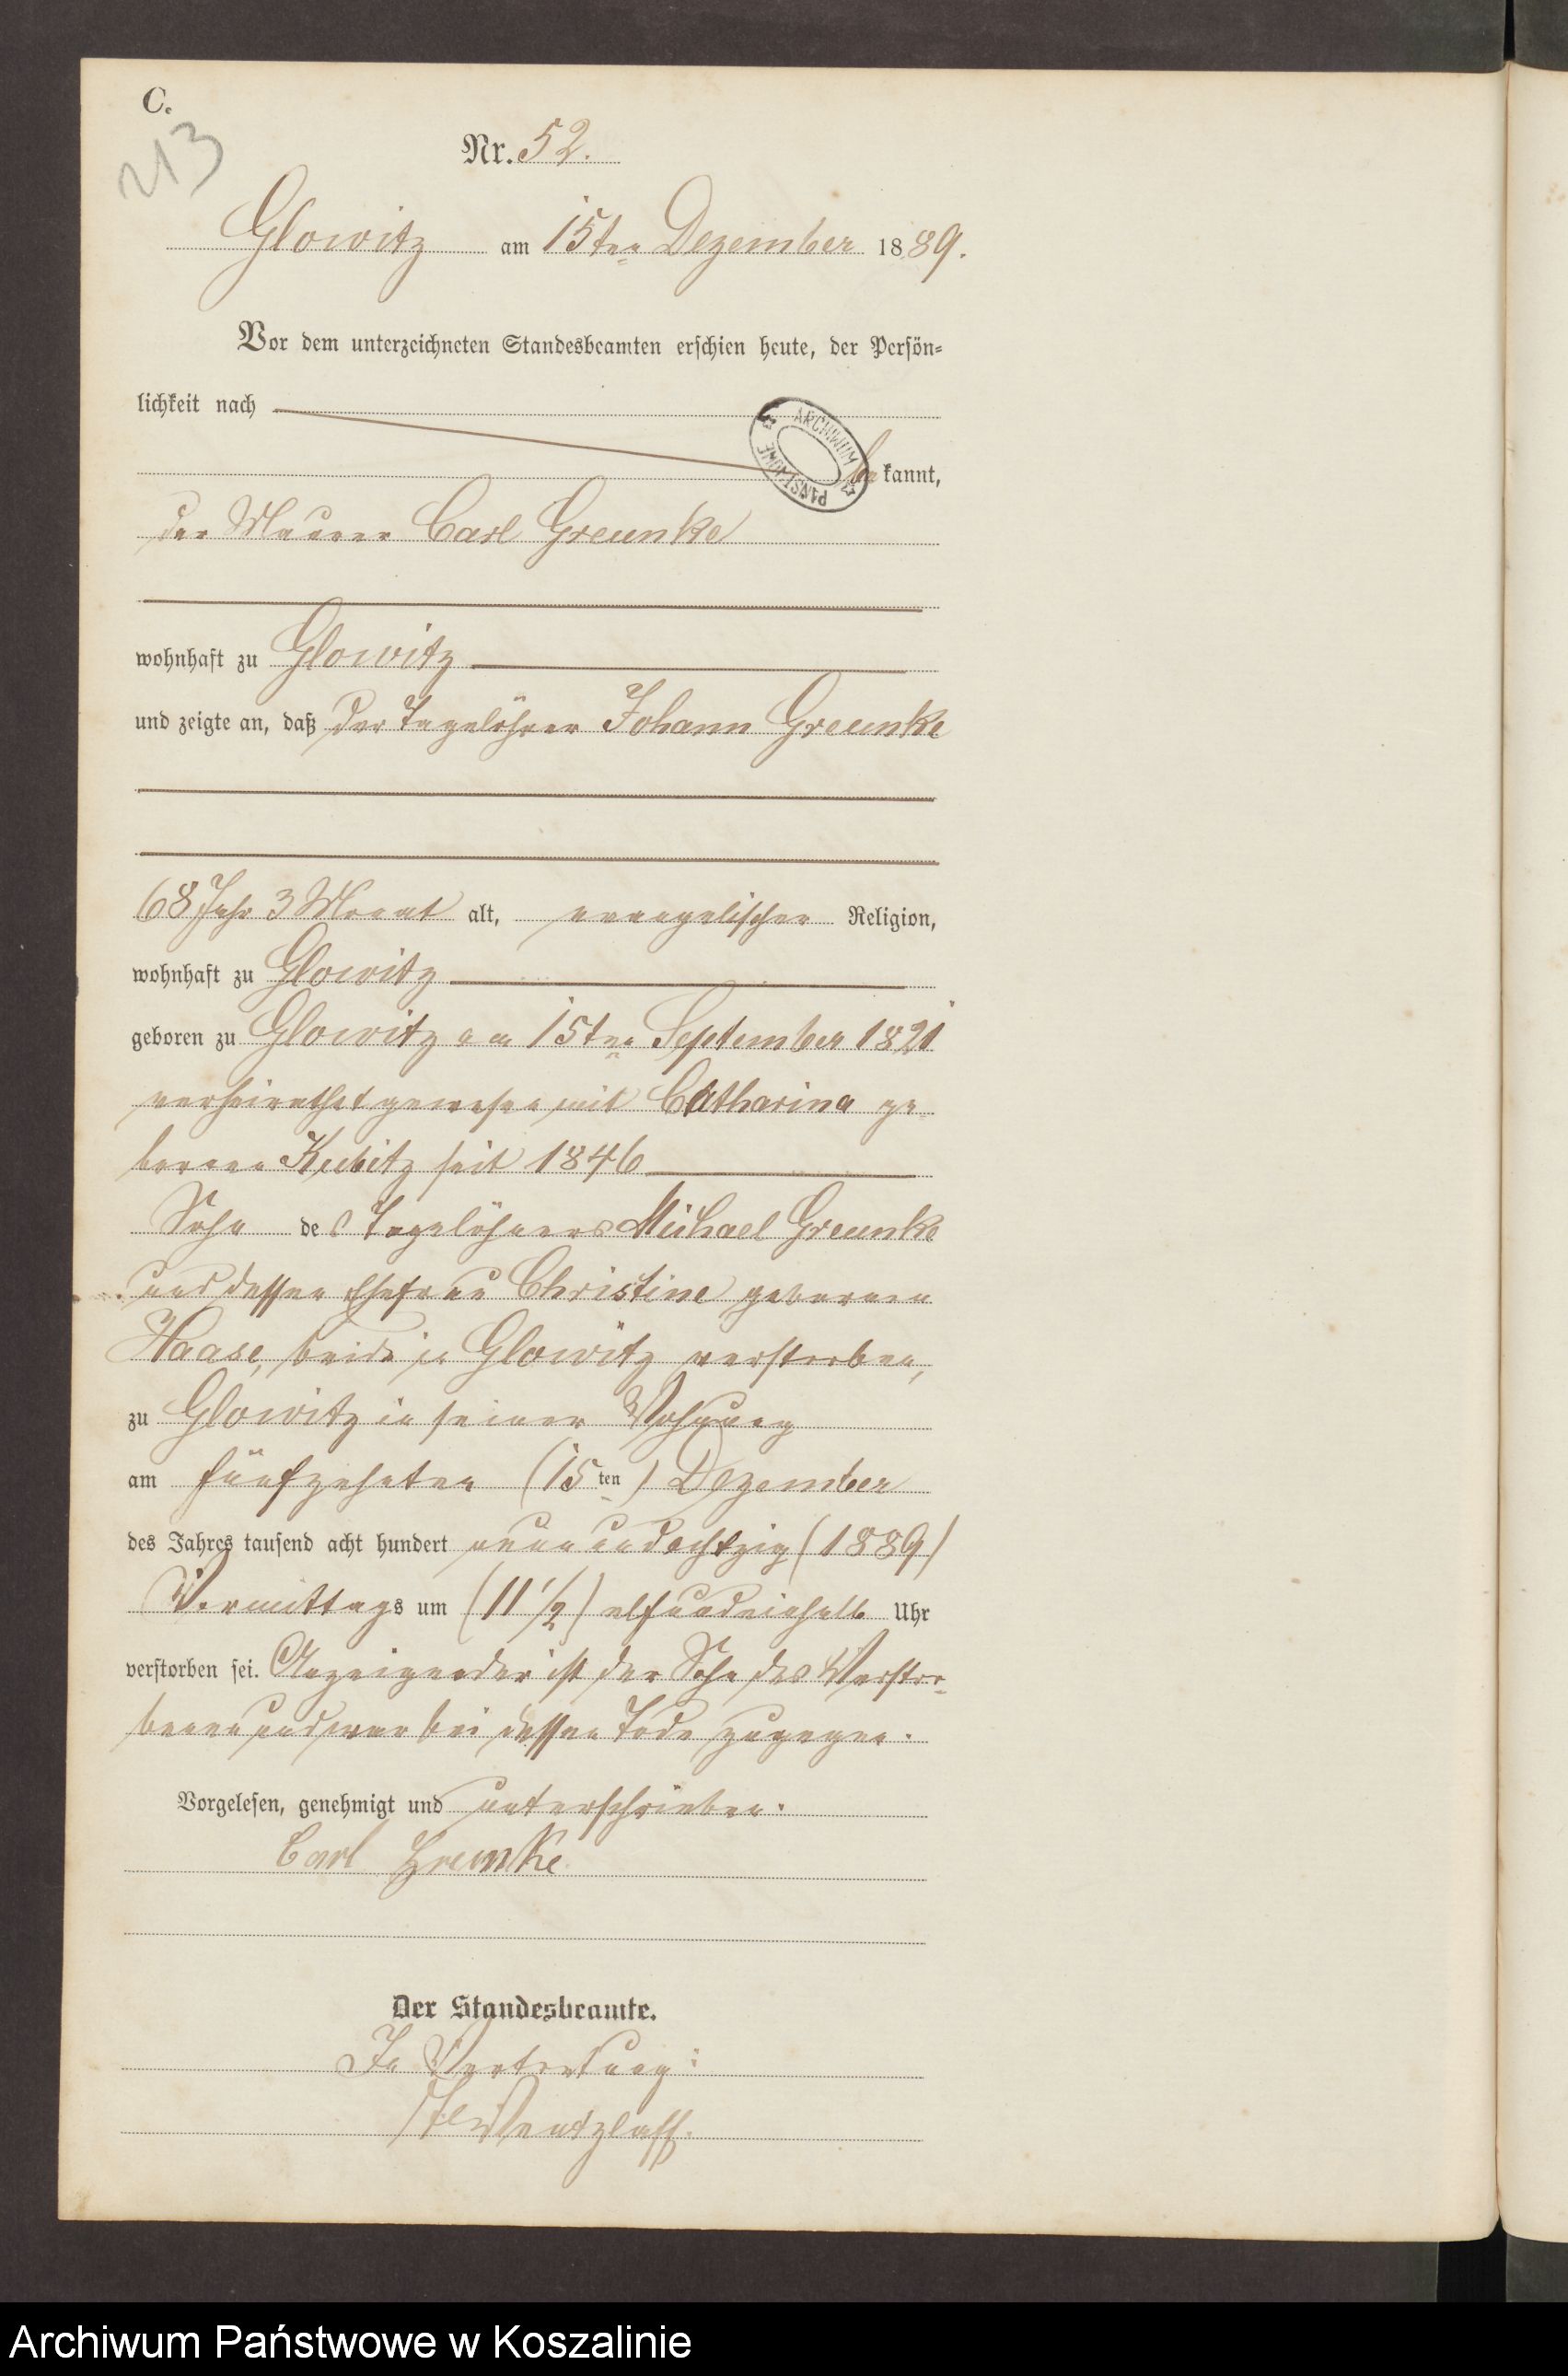 C.
213
Nr. 52.
Glowitz am 15ten Dezember 1889.
Vor dem unterzeichneten Standesbeamten erschien heute, der Persön-
lichkeit nach
bekannt,
ARCHIWUM PAŃSTWOWE
der Maurer Carl Greunke
wohnhaft zu Glowitz
und zeigte an, daß der Tagelöhner Johann Greunke
68 Jahr 3 Monat alt, evangelischer Religion,
wohnhaft zu Glowitz
geboren zu Glowitz am 15ten September 1821
verheirathet gewesen mit Catharina ge-
borenen Kubitz seit 1846
Sohn des Tagelöhners Michael Greunke
und dessen Ehefrau Christine geborenen
Haase, beide zu Glowitz verstorben,
zu Glowitz in seiner Wohnung
am fünfzehnten (15ten) Dezember
des Jahres tausend acht hundert neunundachtzig (1889)
Vormittags um (11 1/2) elfundeinhalb Uhr
verstorben sei. Anzeigender ist der Sohn des Verstor-
benen und war bei dessen Tode zugegen.
Vorgelesen, genehmigt und unterschrieben.
Carl Greunke
Der Standesbeamte.
In Vertretung:
Wentzlaff.
Archiwum Państwowe w Koszalinie